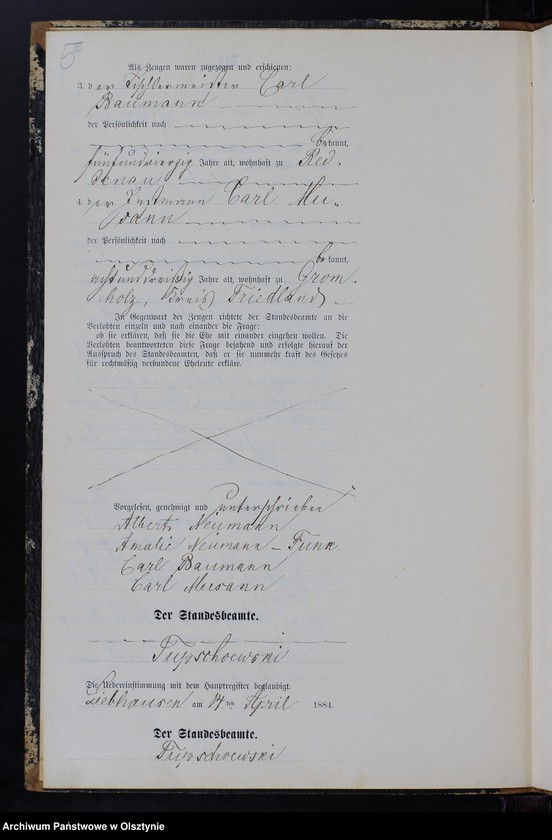 5
Als Zeugen waren zugezogen und erschienen:
3. der Tischlermeister Carl
Baumann
der Persönlichkeit nach
bekannt,
fünfundvierzig Jahre alt, wohnhaft zu Red-
denau
4. der Instmann Carl
der Persönlichkeit nach
bekannt,
achtunddreißig Jahre alt, wohnhaft zu Grom-
holz, Kreis Friedland
In Gegenwart der Zeugen richtete der Standesbeamte an die
Verlobten einzeln und nach einander die Frage:
ob sie erklären, daß sie die Ehe mit einander eingehen wollen. Die
Verlobten beantworteten diese Frage bejahend und erfolgte hierauf der
Ausspruch des Standesbeamten, daß er sie nunmehr kraft des Gesetzes
für rechtmäßig verbundene Eheleute erkläre.
Vorgelesen, genehmigt und unterschrieben
Albert Neumann
Amalie Neumann - Funk
Carl Baumann
Carl
Der Standesbeamte.
Die Uebereinstimmung mit dem Hauptregister beglaubigt.
Liebhausen am 14ten April 1884.
Der Standesbeamte.
Archiwum Państwowe w Olsztynie